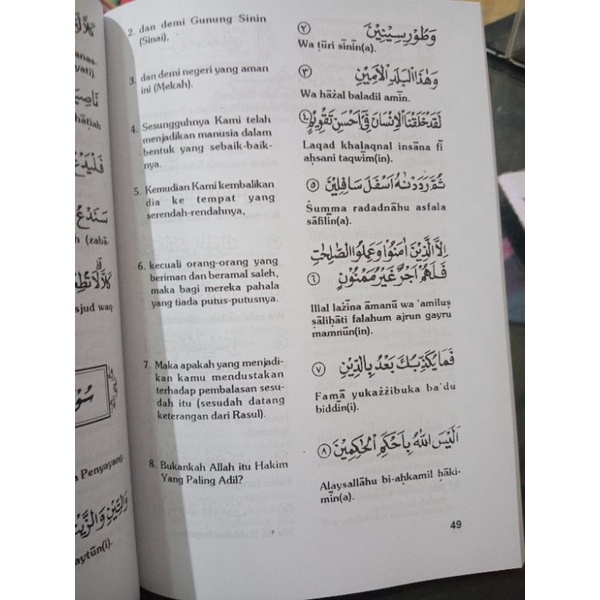 2. dan demi Gunung Sinin
(Sinai),
وَطُوْرِ سِيْنِيْنَ ۝٢
Wa ṭūri sīnīn(a).
3. dan demi negeri yang aman
ini (Mekah).
وَهٰذَا الْبَلَدِ الْاَمِيْنِ ۝٣
Wa hāżal baladil amīn.
4. Sesungguhnya Kami telah
menjadikan manusia dalam
bentuk yang sebaik-baik-
nya.
لَقَدْ خَلَقْنَا الْاِنْسَانَ فِيْٓ اَحْسَنِ تَقْوِيْمٍ ۝٤
Laqad khalaqnal insāna fī
aḥsani taqwīm(in).
5. Kemudian Kami kembalikan
dia ke tempat yang
serendah-rendahnya,
ثُمَّ رَدَدْنٰهُ اَسْفَلَ سَافِلِيْنَ ۝٥
Ṡumma radadnāhu asfala
sāfilīn(a).
6. kecuali orang-orang yang
beriman dan beramal saleh,
maka bagi mereka pahala
yang tiada putus-putusnya.
اِلَّا الَّذِيْنَ اٰمَنُوْا وَعَمِلُوا الصّٰلِحٰتِ
فَلَهُمْ اَجْرٌ غَيْرُ مَمْنُوْنٍ ۝٦
Illal lażīna āmanū wa ‘amiluṣ
ṣāliḥāti falahum ajrun gayru
mamnūn(in).
7. Maka apakah yang menjadi-
kan kamu mendustakan
terhadap pembalasan sesu-
dah itu (sesudah datang
keterangan dari Rasul).
فَمَا يُكَذِّبُكَ بَعْدُ بِالدِّيْنِ ۝٧
Famā yukażżibuka ba‘du
biddīn(i).
8. Bukankah Allah itu Hakim
Yang Paling Adil?
اَلَيْسَ اللّٰهُ بِاَحْكَمِ الْحٰكِمِيْنَ ۝٨
Alaysallāhu bi-aḥkamil ḥāki-
mīn(a).
49
Penyayang.
وَالتِّيْنِ وَالزَّيْتُ
aytūn(i).